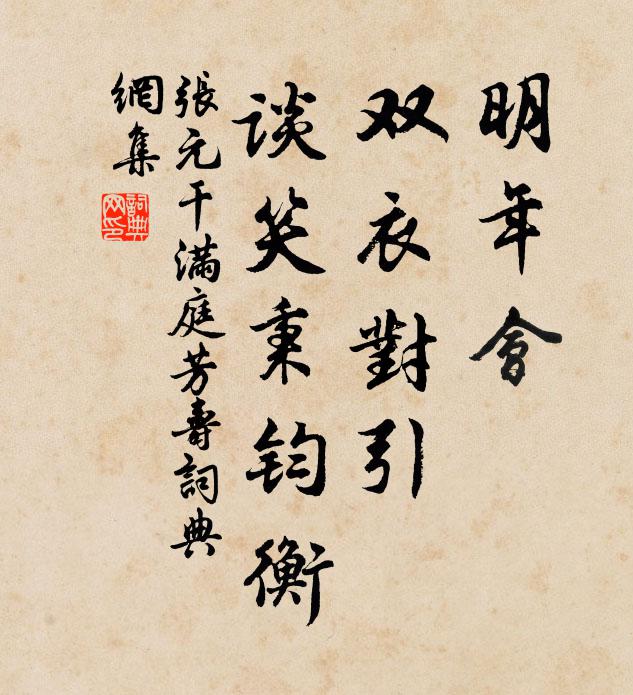 明年會
双衣對引
谈笑秉钧衡
張元干满庭芳壽詞典
網集
詞典
网印